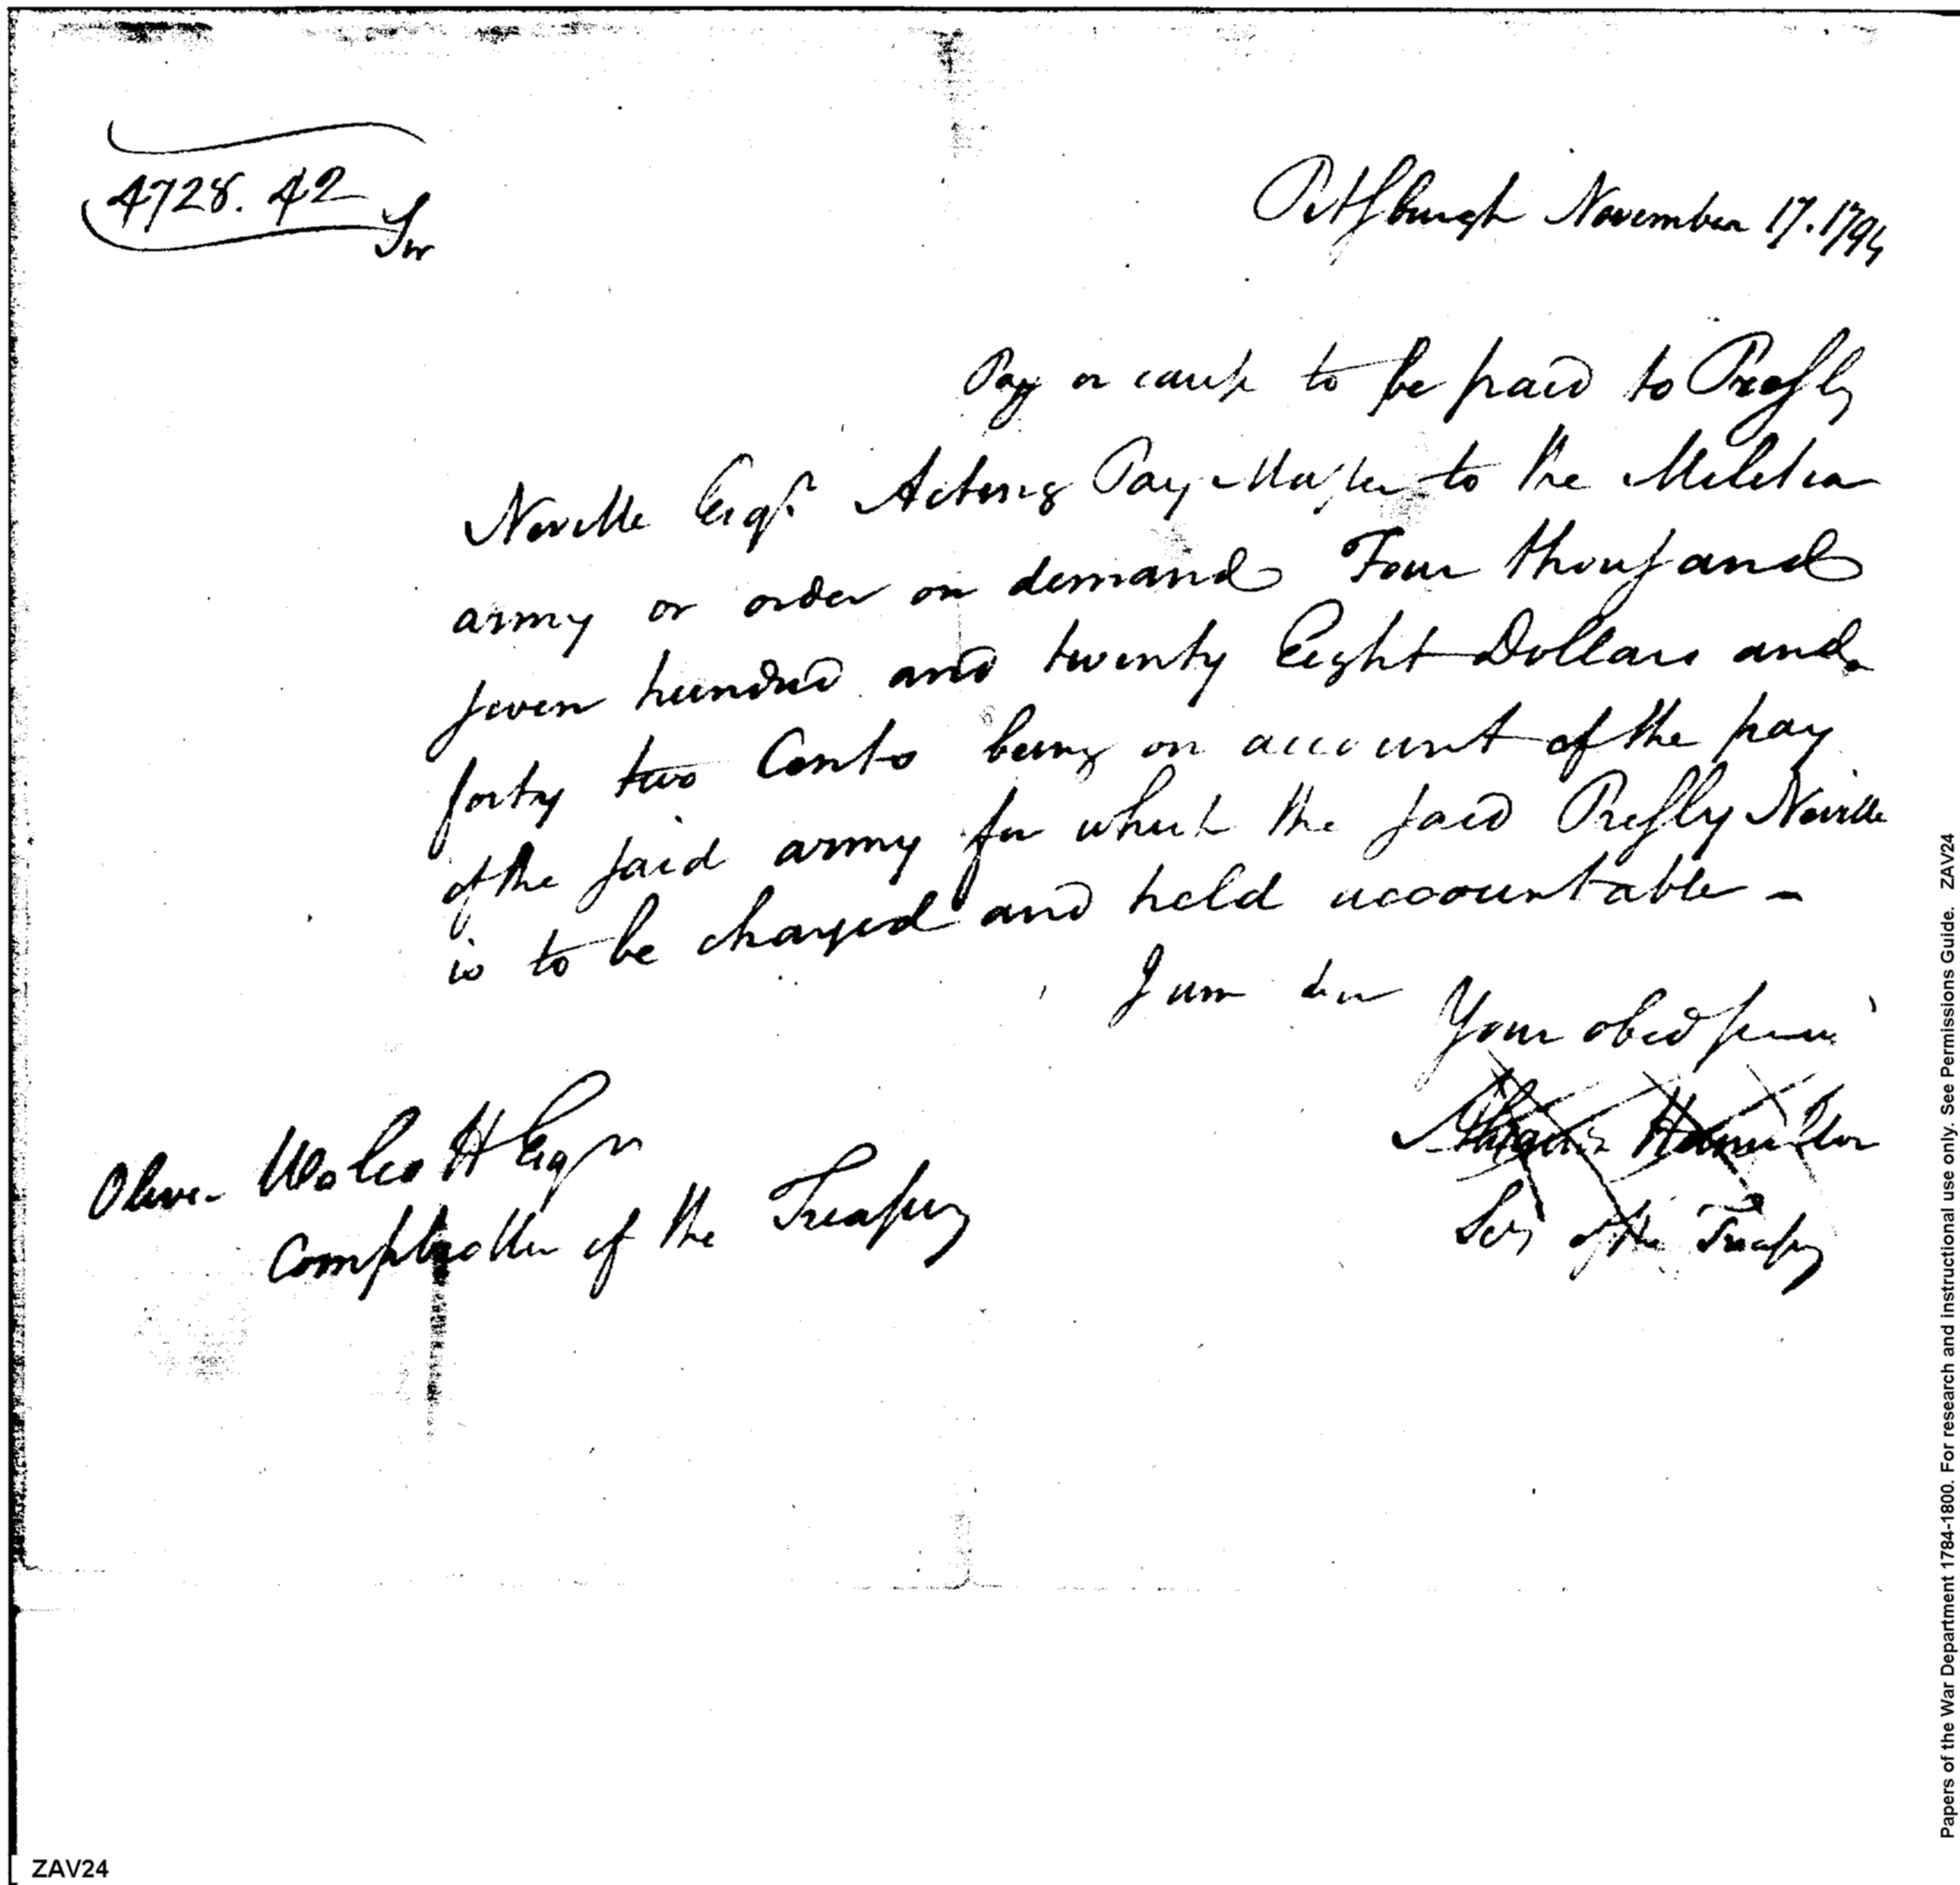 4728. 42
Pittsburgh November 17. 1794
Sir
Pay or cause to be paid to Presly
Neville Esqr. Acting Pay Master to the Militia
army or order on demand Four thousand
seven hundred and twenty Eight Dollars and
forty two Cents being on account of the pay
of the said army for which the said Presly Neville
is to be charged and held accountable -
I am
Your obed serv
Hamilton
Secy of the Treasury
Oliver Wolcott Esqr
Comptroller of the Treasury
Papers of the War Department 1784-1800. For research and instructional use only. See Permissions Guide. ZAV24
ZAV24